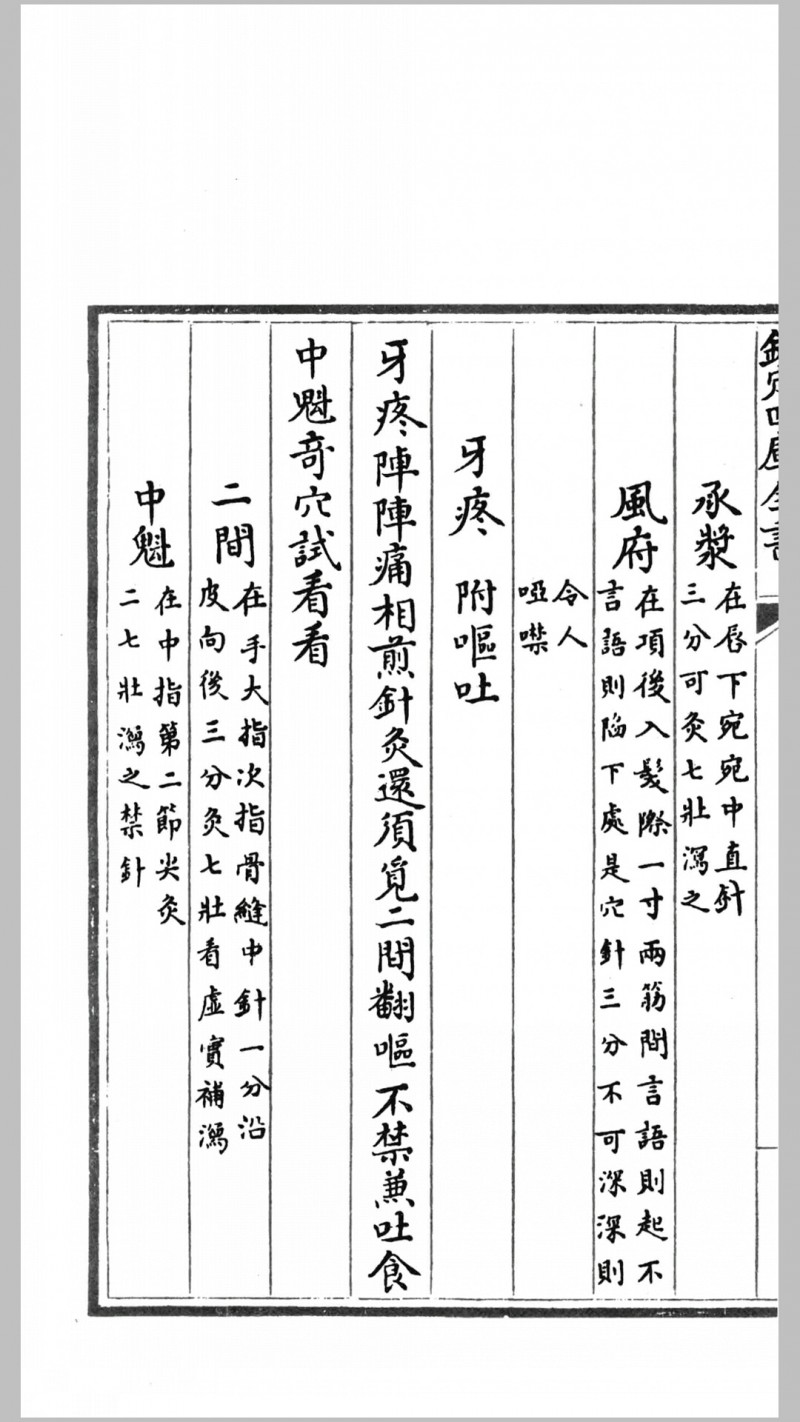 欽定四庫全書
承漿 在唇下宛宛中直針
三分可灸七壯瀉之
風府 在項後入髮際一寸兩筋間言語則起不
言語則陷下處是穴針三分不可深深則
令人
啞噤
牙疼 附嘔吐
牙疼陣陣痛相煎針灸還須覓二間翻嘔不禁兼吐食
中魁竒穴試看看
二間 在手大指次指骨縫中針一分沿
皮向後三分灸七壯看虛實補瀉
中魁 在中指第二節尖灸
二七壯瀉之禁針